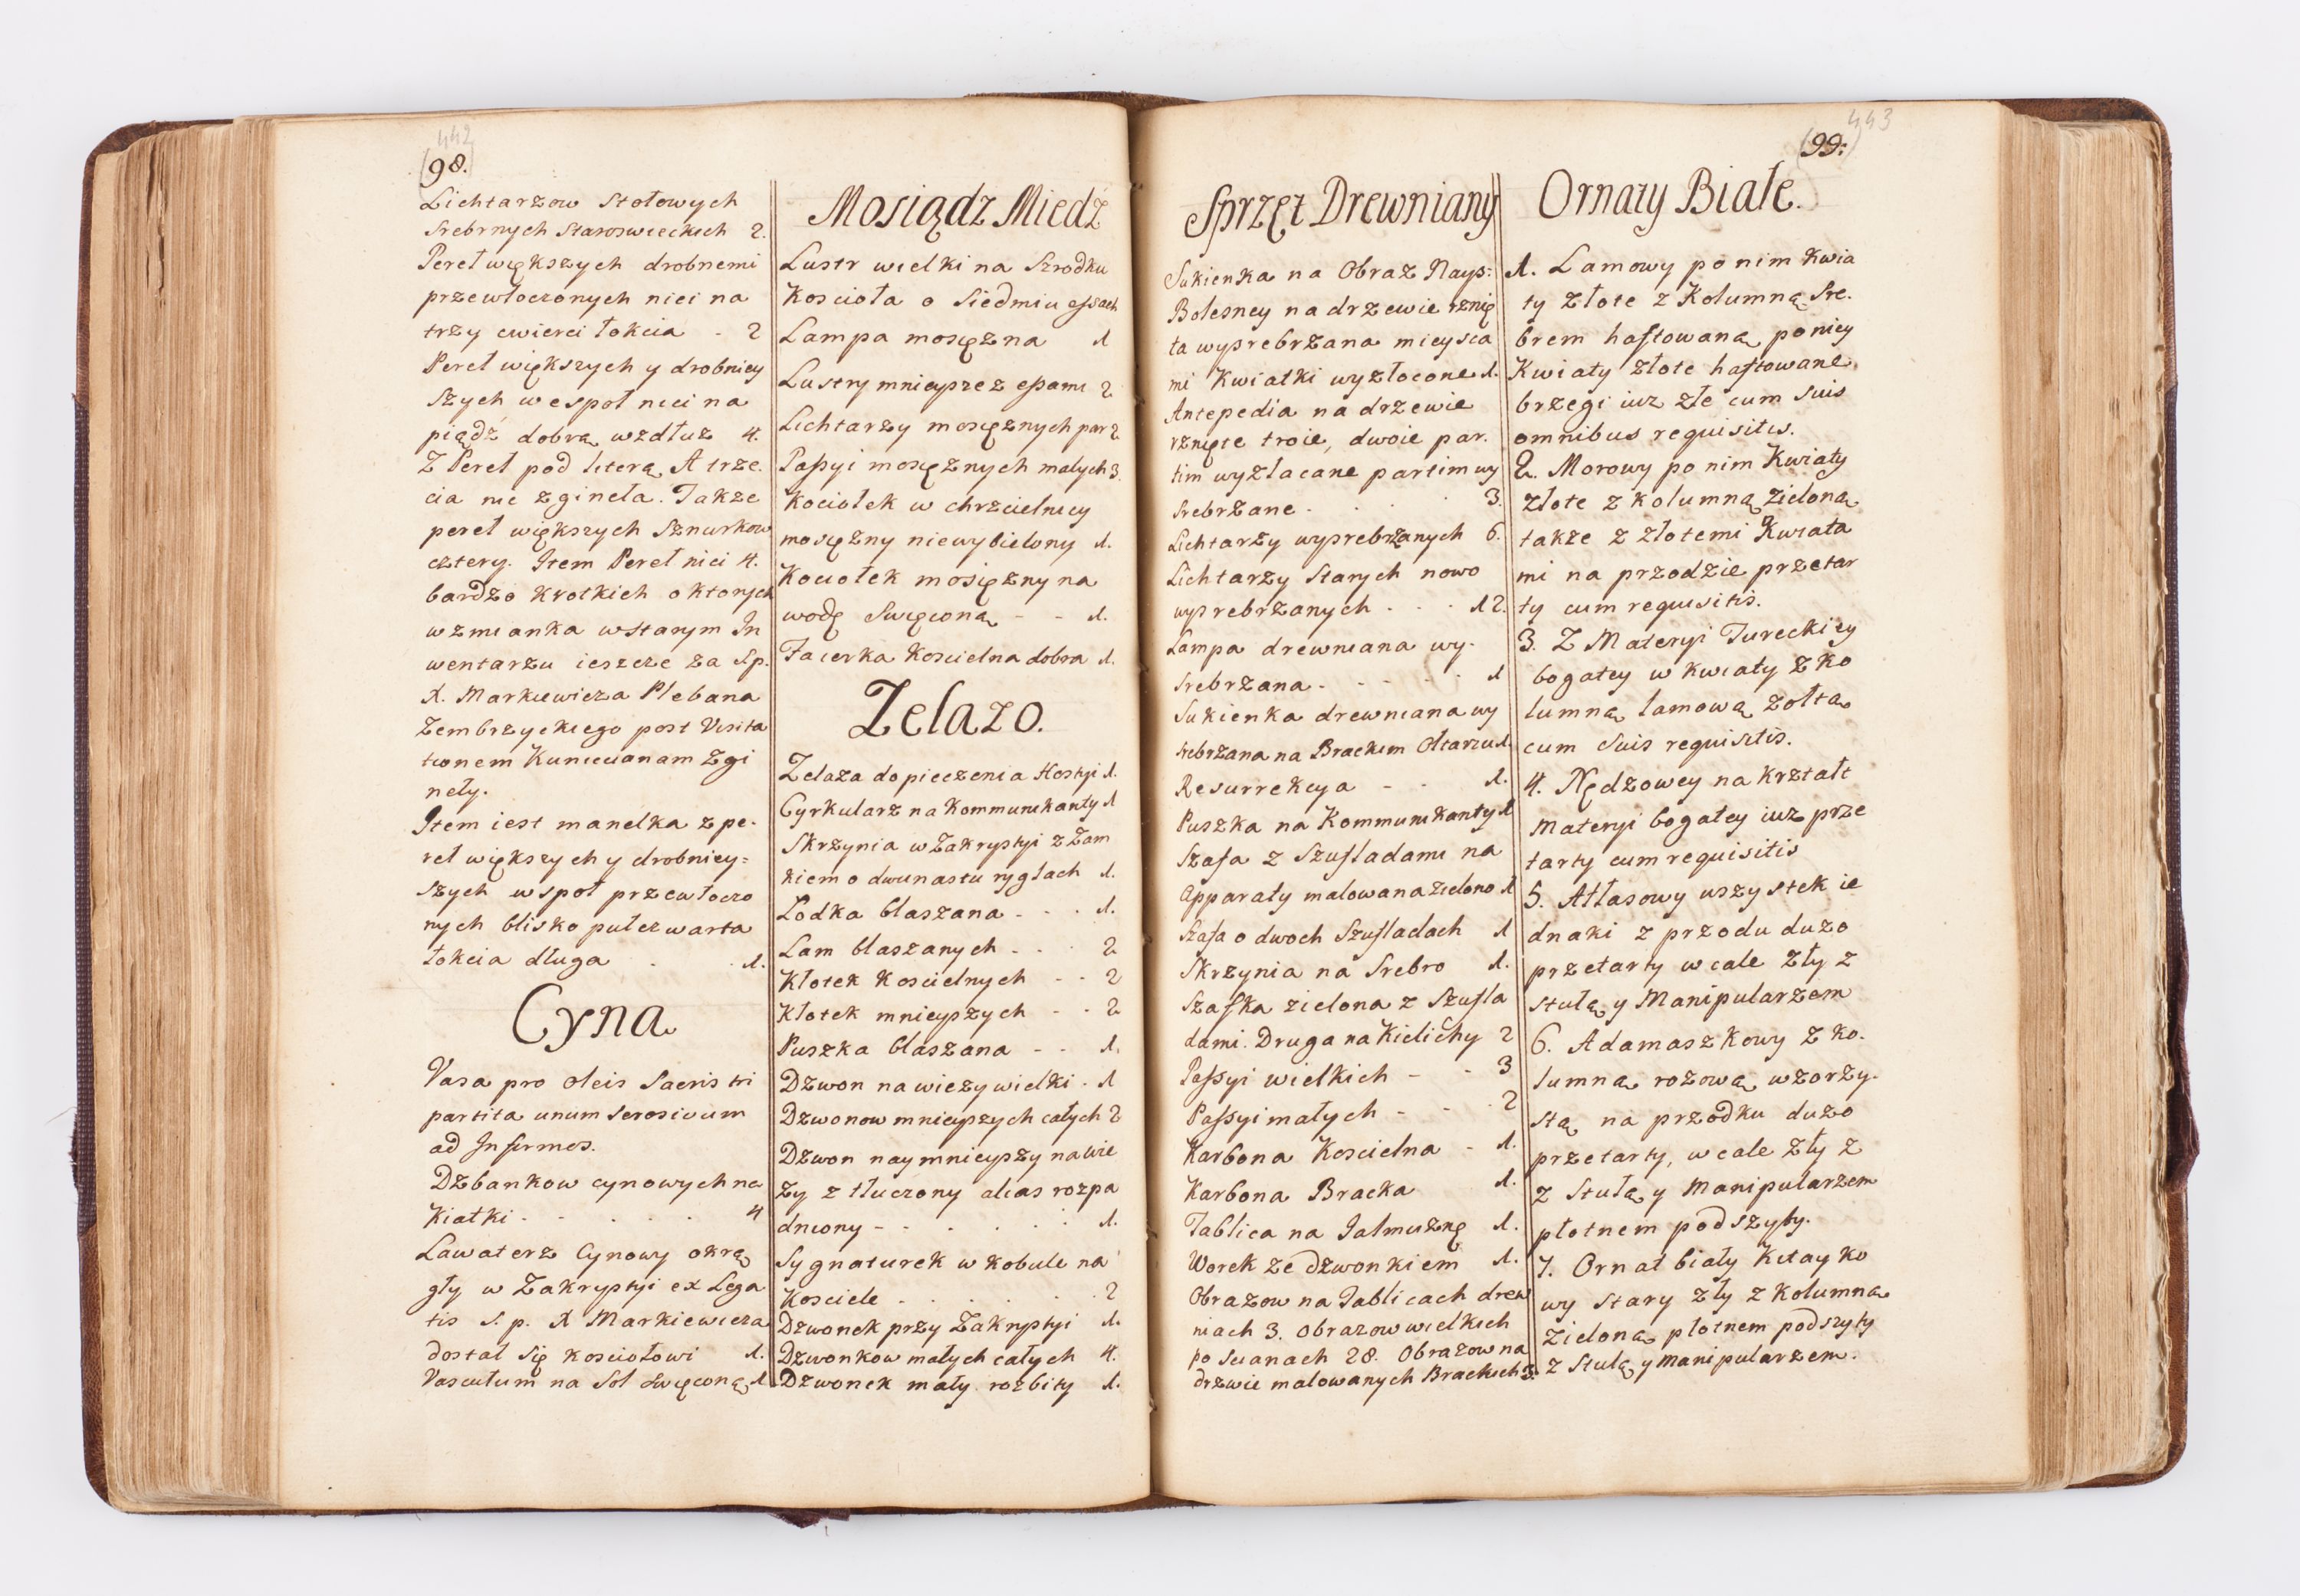 442
(98.)
Lichtarzow stołowych
srebrnych staroswieckich 2.
Pereł większych drobnemi
przewłoczonych nici na
trzy cwierci łokcia - 2
Pereł większych y drobniey
szych wespoł nici na
piądź dobrą wzdłuz 4.
Z Pereł pod literą A trze.
cia nic zgineła. Takze
pereł większych Sznurkow
cztery. Item Pereł nici 4.
bardzo krotkich o ktorych
wzmianka w starym In
wentarzu ieszcze za Sp.
X. Markiewicza Plebana
Zembrzyckiego post Visita
tionem Kunicianam zgi
neły.
Item iest manelka z pe-
reł większych y drobniey=
szych wspoł przewłoczo
nych blisko pułczwarta
łokcia długa . . 1.
Cyna
Vasa pro Oleis Sacris tri
partita unum seorsivum
ad Infirmos.
Dzbankow cynowych na
Kiatki - . . . . 4
Lawaterz Cynowy okrą
gły w Zakrystyi ex Lega
tis S. p. X Markiewicza
dostał się kosciołowi 1.
Vasculum na Sol swięconą 1
Mosiądz Miedź
Lustr wielki na Szrodku
Koscioła o siedmiu essach
Lampa mosięzna 1
Lustry mnieysze z essami 2
Lichtarzy mosięznych par 2
Passyi mosięznych małych 3.
Kociołek w chrzcielnicy
mosięzny niewybielony 1.
Kociołek mosięzny na
wodę swięconą - - 1.
Facerka Koscielna dobra 1.
Zelazo.
Zelaza do pieczenia Hostyi 1.
Cyrkularz na Kommunikanty 1
Skrzynia w Zakrystyi z Zam
kiem o dwunastu ryglach 1.
Łodka blaszana - . . 1.
Lam blaszanych - . . 2
Kłotek Koscielnych - - 2
Kłotek mnieyszych - . 2
Puszka blaszana - - 1.
Dzwon na wiezy wielki . 1
Dzwonow mnieyszych całych 2
Dzwon naymnieyszy na wie
zy z tłuczony alias rozpa
dniony - - . . . . 1.
Sygnaturek w kobule na
Kosciele . . . . . . 2
Dzwonek przy Zakrystyi 1.
Dzwonkow małych całych 4.
Dzwonek mały rozbity 1.
443
(99:)
Sprzęt Drewniany
Sukienka na Obraz Nays:
Bolesney na drzewie rznię
ta wysrebrzana mieysca
mi Kwiatki wyzłocone 1.
Antepedia na drzewie
rznięte troie, dwoie par.
tim wyzłacane partim wy
srebrzane . . . . 3.
Lichtarzy wysrebrzanych 6.
Lichtarzy Starych nowo
wysrebrzanych . . . 12.
Lampa drewniana wy-
srebrzana . - . - . 1
Sukienka drewniana wy
srebrzana na Brackim Ołtarzu 1.
Resurrekcya - . 1.
Puszka na Kommunikanty 1
Szafa z Szufladami na
Apparaty malowana zielono 1
Szafa o dwoch Szufladach 1
Skrzynia na Srebro 1.
Szafka zielona z Szufla
dami. Druga na Kielichy 2
Passyi wielkich - - 3
Passyi małych - - . 2
Karbona Koscielna - 1.
Karbona Bracka 1.
Tablica na Jałmuznę 1.
Worek ze dzwonkiem 1.
Obrazow na Tablicach drew
niach 3. Obrazow wielkich
po scianach 28. Obrazow na
drzwie malowanych Brackich 3.
Ornaty Białe.
1. Lamowy po nim Kwia
ty złote z Kolumną Sre.
brem haftowaną po niey
Kwiaty złote haftowane
brzegi iuz złe cum suis
omnibus requisitis.
2. Morowy po nim Kwiaty
złote z kolumną zieloną
takze z złotemi Kwiata
mi na przodzie przetar
ty cum requisitis.
3. Z Materyi Tureckiey
bogatey w kwiaty z ko
lumną lamową zołtą
cum suis requisitis.
4. Nędzowey na krztałt
Materyi bogatey iuz prze
tarty cum requisitis
5. Atłasowy wszystek ie
dnaki z przodu duzo
przetarty w cale zły z
stułą y Manipularzem
6. Adamaszkowy z ko.
lumną rozową wzorzy.
stą na przodku duzo
przetarty, w cale zły z
z Stułą y Manipularzem
płotnem podszyty.
7. Ornat biały Kitayko
wy stary zły z kolumną
zieloną płotnem podszyty
z Stułą y manipularzem.